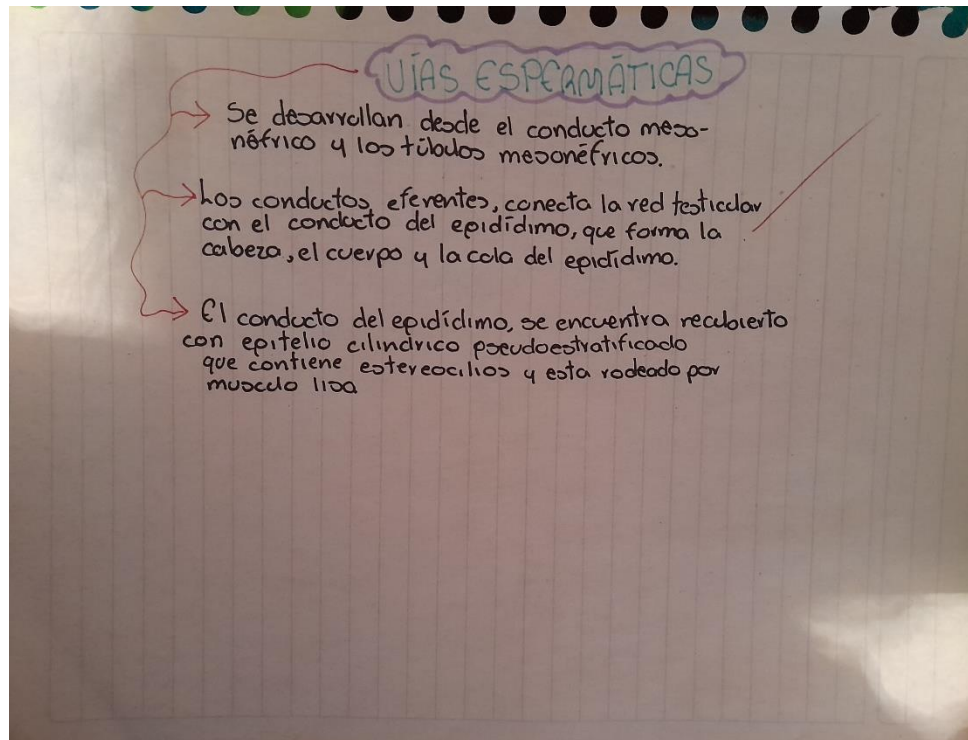 VÍAS ESPERMÁTICAS
Se desarrollan desde el conducto meso-
néfrico y los túbulos mesonéfricos.
Los conductos eferentes, conecta la red testicular
con el conducto del epidídimo, que forma la
cabeza, el cuerpo y la cola del epidídimo.
El conducto del epidídimo, se encuentra recubierto
con epitelio cilindrico pseudoestratificado
que contiene estereocilios y esta rodeado por
musculo liso